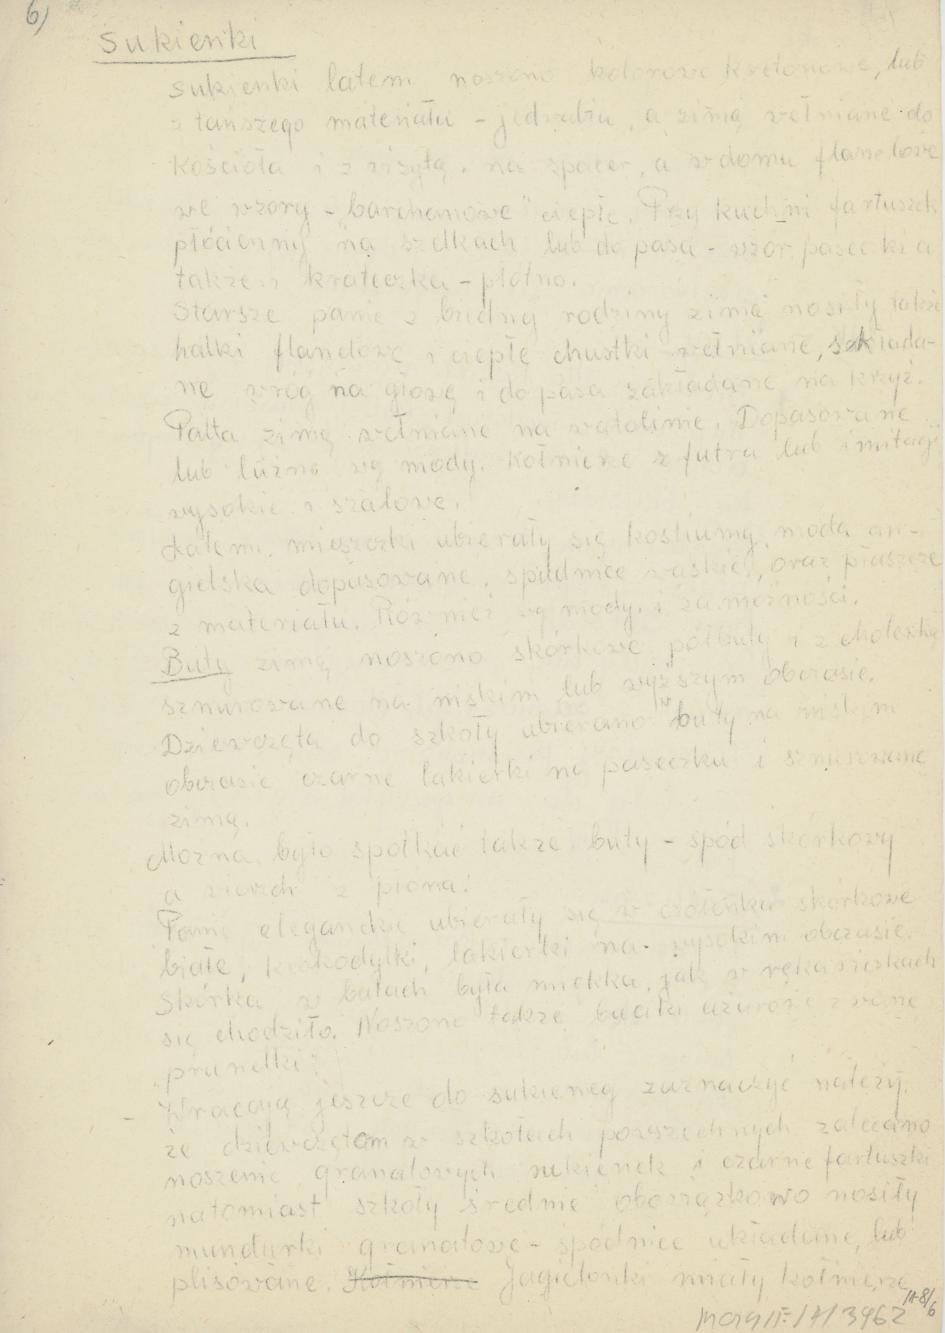 6)
Sukienki
sukienki latem noszono kolorowe kretonowe, lub
z tańszego materiału - jedwabiu, a zimą wełniane do
kościoła i z wizytą, na spacer, a w domu flanelowe
we wzory - barchanowe" ciepłe. Przy kuchni fartuszek
płócienny na szelkach lub do pasa - wzór paseczki a
także i krateczka - płótno.
Starsze panie z biednej rodziny zimą nosiły także
halki flanelowe i ciepłe chustki wełniane, składa-
ne w róg na głowę i do pasa zakładane na krzyż.
Palta zimą wełniane na watolinie. Dopasowane
lub luźne wg mody. Kołnierze z futra lub imitacji
wysokie i szalowe.
Latem mieszczki ubierały się kostiumy, moda an-
gielska dopasowane, spódnice wąskie, oraz płaszcze
z materiału. Również wg mody, i zamożności.
Buty zimą noszono skórkowe półbuty i z cholewką
sznurowane na niskim lub wyższym obcasie.
Dziewczęta do szkoły ubierano w buty na niskim
obcasie czarne lakierki na paseczku i sznurowane
zimą.
Można było spotkać także buty - spód skórkowy
a wierzch z
Panie eleganckie ubierały się w czółenka skórkowe
białe, krokodylki, lakierki na wysokim obcasie.
Skórka w butach była miękka, jak w rękawiczkach
się chodziło. Noszono także buciki ażurowe zwane
"prunelki".
- Wracając jeszcze do sukienek zaznaczyć należy,
że dziewczętom w szkołach powszechnych zalecano
noszenie granatowych sukienek i czarne fartuszki
natomiast szkoły średnie obowiązkowo nosiły
mundurki granatowe - spódnice układane, lub
plisowane. Kołnierze Jagielonki miały kołnierze
A-8/6
MCKG/E/A/3962